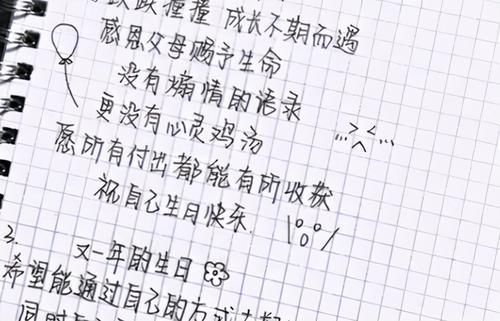 跌跌撞撞 成长不期而遇
感恩父母赐予生命
没有煽情的语录
更没有心灵鸡汤
愿所有付出都能有所收获
祝自己生日快乐
3.
又一年的生日
希望能通过自己的方式
同时